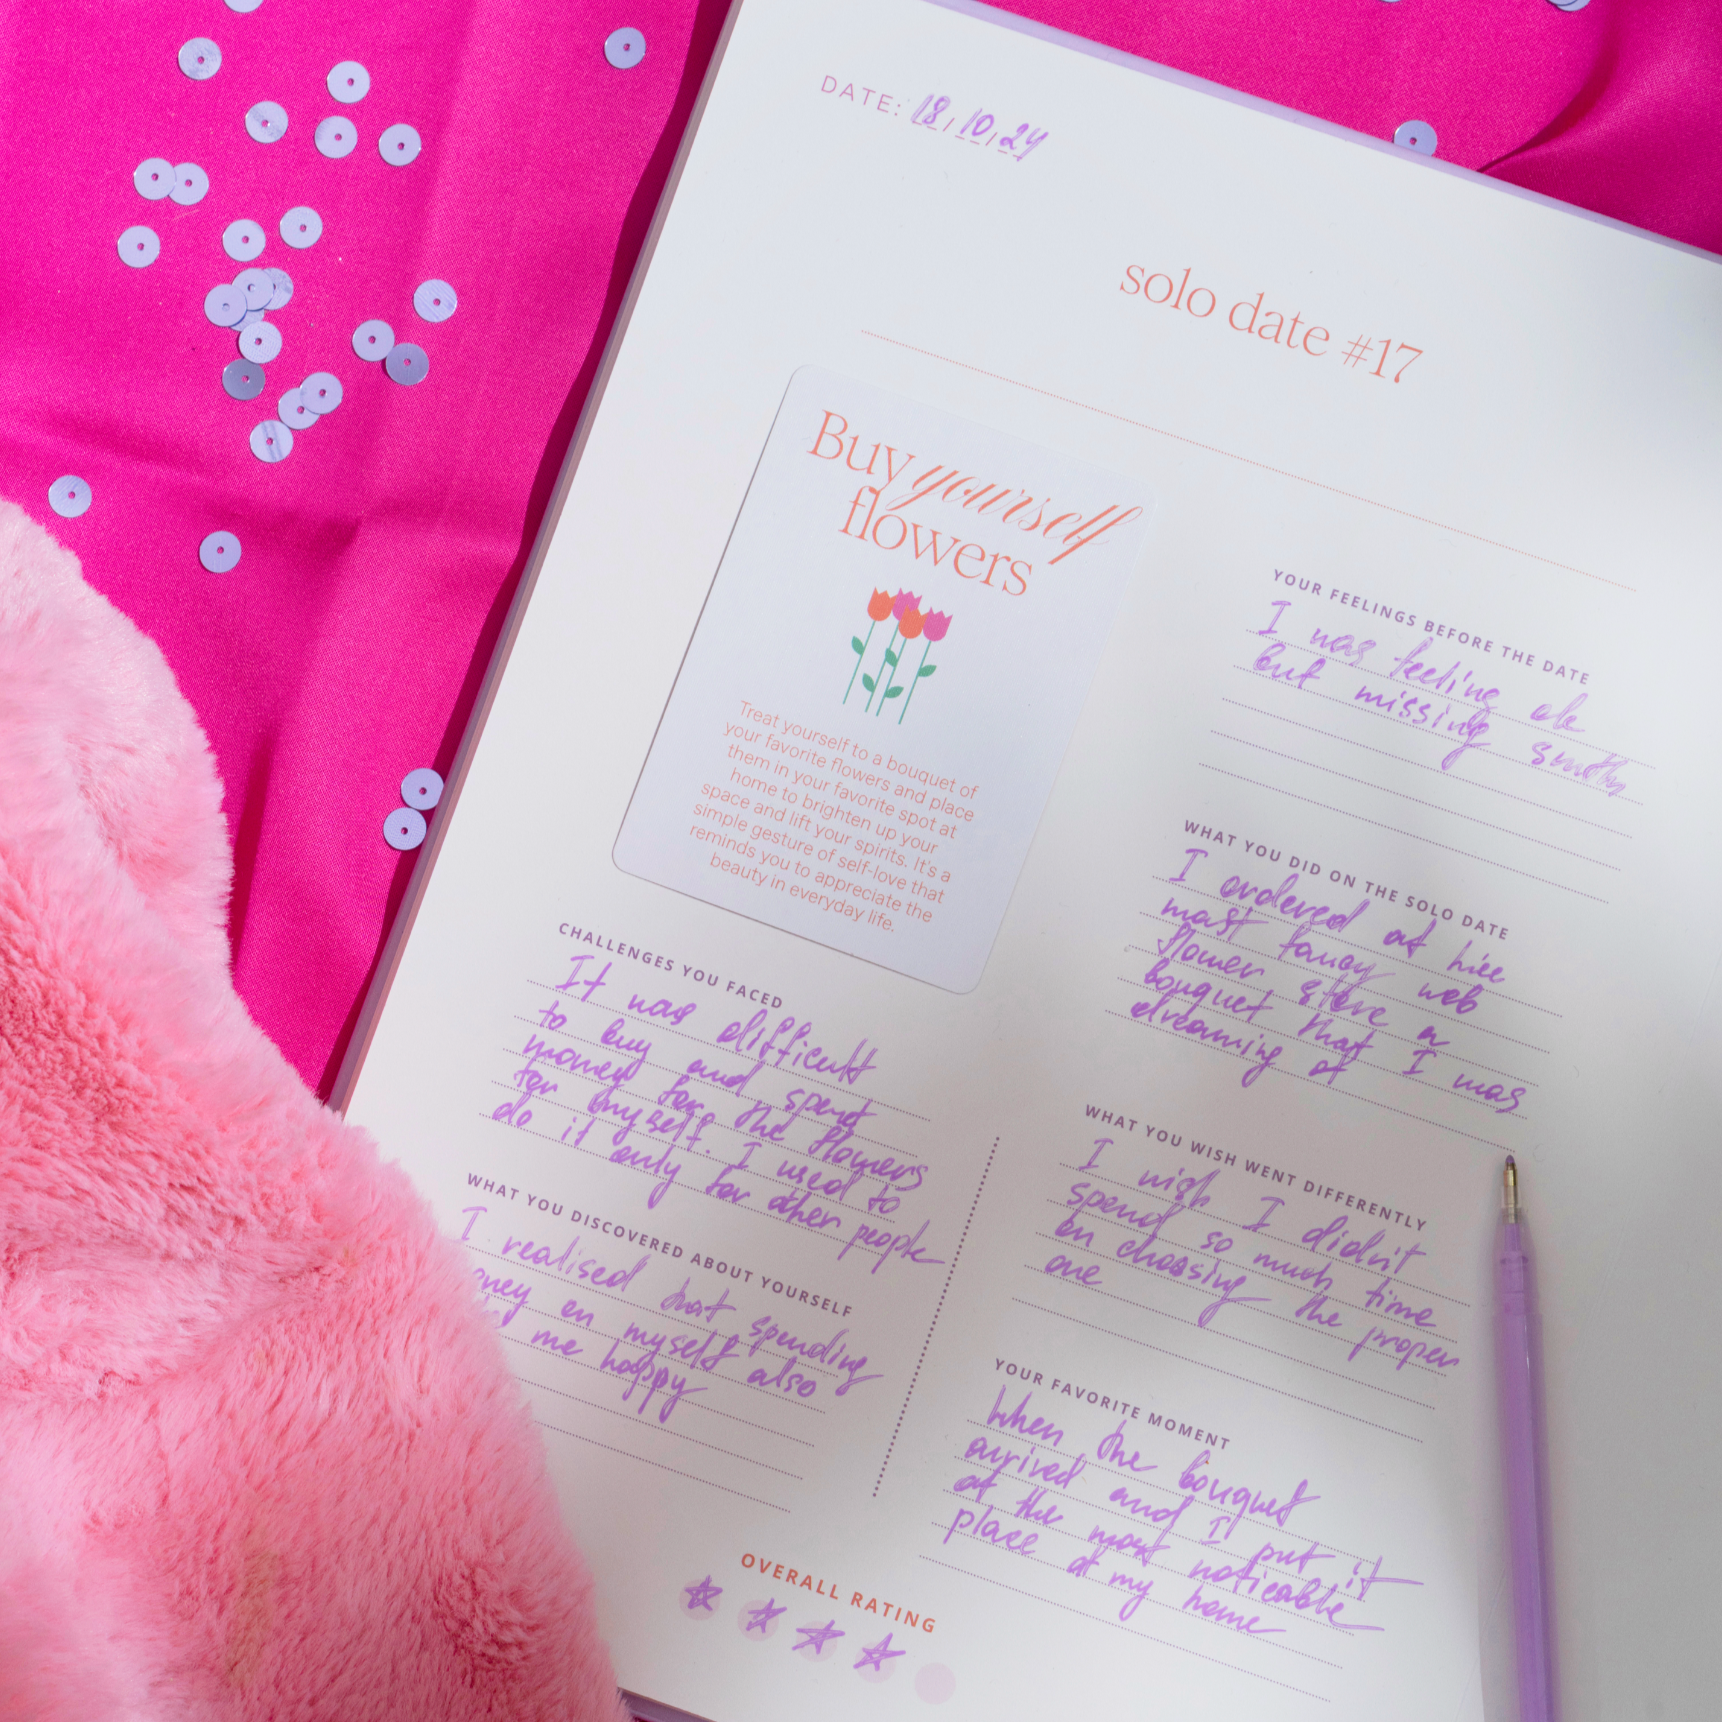 DATE: 18/10/24
solo date #17
Buy yourself
flowers
Treat yourself to a bouquet of
your favorite flowers and place
them in your favorite spot at
home to brighten up your
space and lift your spirits. It's a
simple gesture of self-love that
reminds you to appreciate the
beauty in everyday life.
CHALLENGES YOU FACED
It was difficult
to buy and spent
money for the flowers
for myself. I used to
do it only for other people
WHAT YOU DISCOVERED ABOUT YOURSELF
I realised that spending
oney on myself also
me happy
OVERALL RATING
YOUR FEELINGS BEFORE THE DATE
I was feeling ok
but missing smth
WHAT YOU DID ON THE SOLO DATE
I ordered at
most fancy web
flower store a
bouquet that I was
dreaming of
WHAT YOU WISH WENT DIFFERENTLY
I wish I didn't
spend so much time
on choosing the proper
one
YOUR FAVORITE MOMENT
When the bouquet
arrived and I put it
at the most noticeable
place at my home